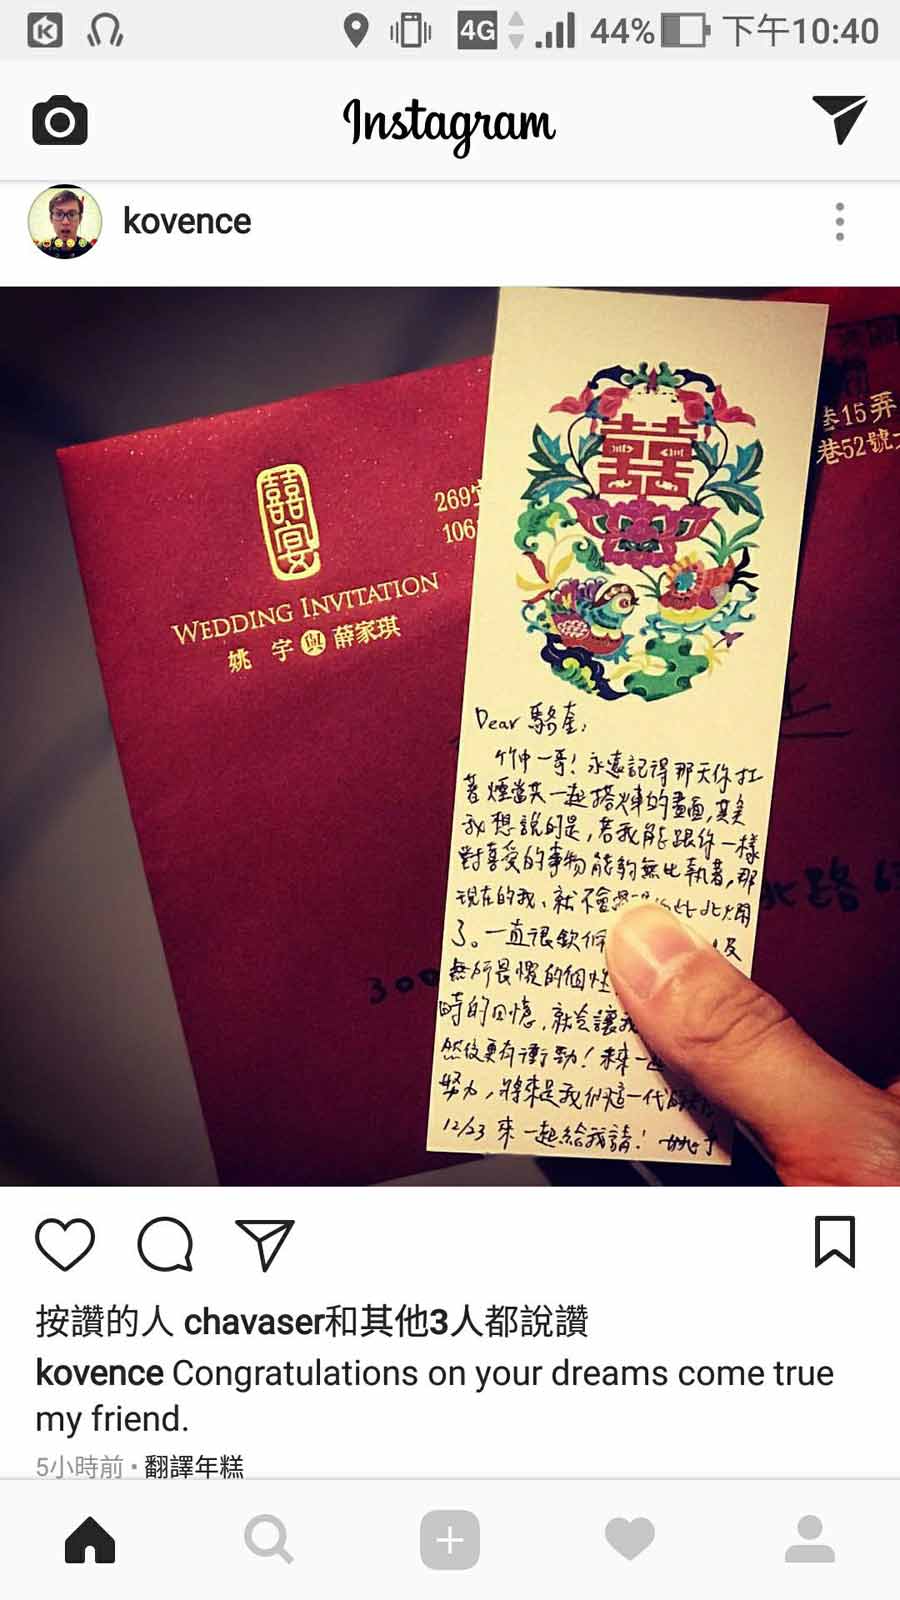 4G
44%
下午10:40
Instagram
kovence
囍宴
WEDDING INVITATION
姚 宇 與 薛家琪
269
106
15弄
巷52號
囍
Dear 駱奎:
竹中一哥! 永遠記得那天你扛
著煙當
一起搭
的畫面,其實
我想說的是,若我能跟你一樣
對喜愛的事物能夠無比執著,那
現在的我、就不會
了。一直很欽佩
及
無所畏懼的個性
時的回憶,就會讓我
然後更有衝勁! 未來一起
努力,將來是我們這一代
12/23 來一起給我請! 姚宇
北路
300
按讚的人 chavaser和其他3人都說讚
kovence Congratulations on your dreams come true
my friend.
5小時前 • 翻譯年糕